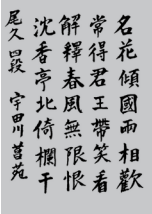 名花傾國両相歡
常得君王帶笑看
解釋春風無限恨
沈香亭北倚欄干
尾久四段 宇田川菖苑